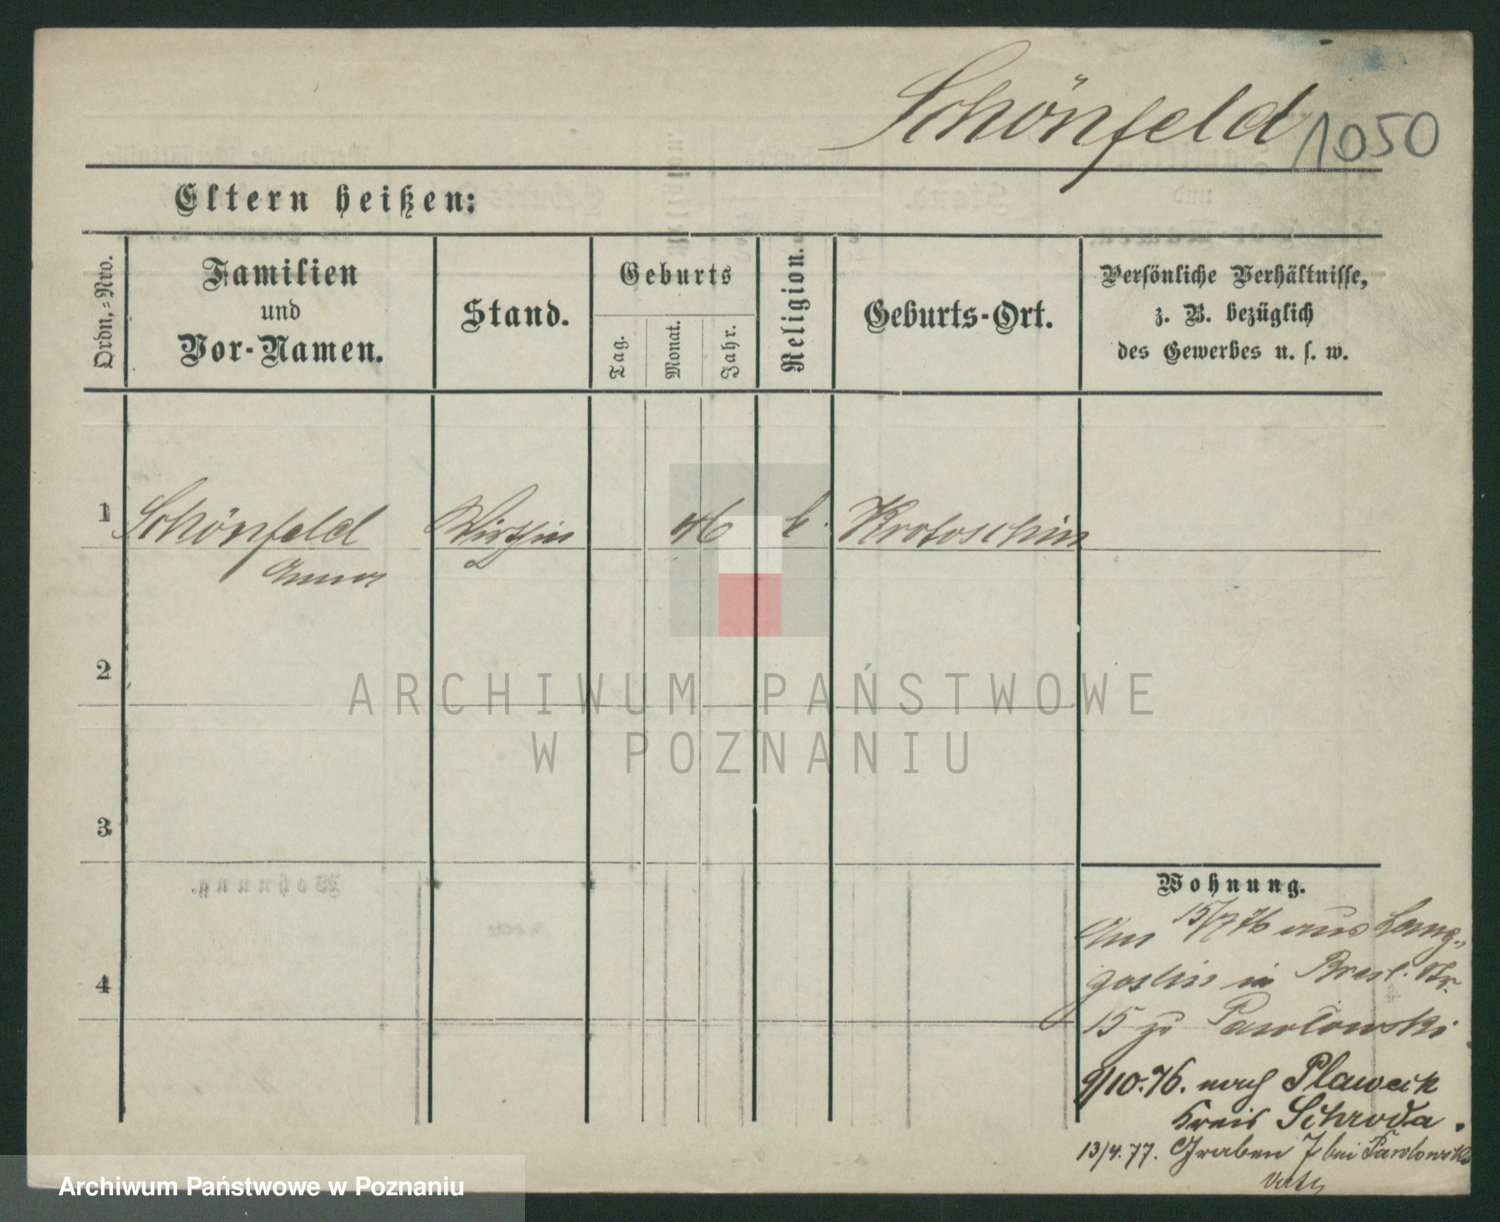 Schönfeld 1050
Eltern heißen:
Ordn.-Nro.
Familien
und
Vor-Namen.
Stand.
Geburts
Tag.
Monat.
Jahr.
Religion.
Geburts-Ort.
Persönliche Verhältnisse,
z. B. bezüglich
des Gewerbes u. s. w.
1 Schönfeld Wirthin 46 k. Krotoschin
Anna
2
3
4
Wohnung.
Am 15/7 76 aus Lang-
goslin in Bresl. Str.
15 zu Pawlowski
9/10.76. nach Plawcik
Kreis Schroda.
13/4.77. Graben 7 bei Pawlowski
ARCHIWUM PAŃSTWOWE
W POZNANIU
Archiwum Państwowe w Poznaniu